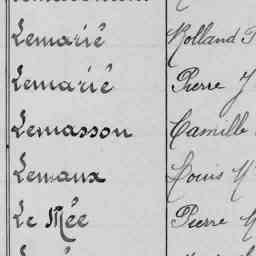 Lemarié Rolland
Lemarié Pierre J
Lemasson Camille
Lemaux Louis M
Le Mée Pierre M